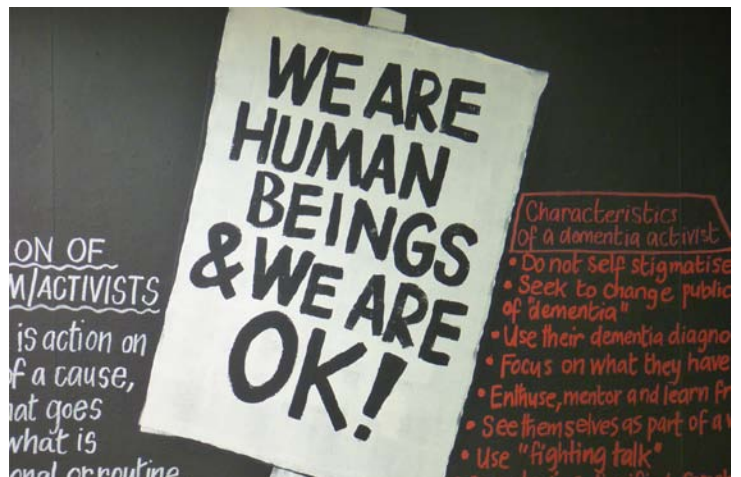 ON OF
M/ACTIVISTS
is action on
of a cause,
hat goes
what is
onal or routine
WE ARE
HUMAN
BEINGS
& WE ARE
OK!
Characteristics
of a dementia activist
• Do not self stigmatise
• Seek to change public
of "dementia"
• Use their dementia diagno
• Focus on what they have
• Enthuse, mentor and learn fr
• See themselves as part of a w
• Use "fighting talk"